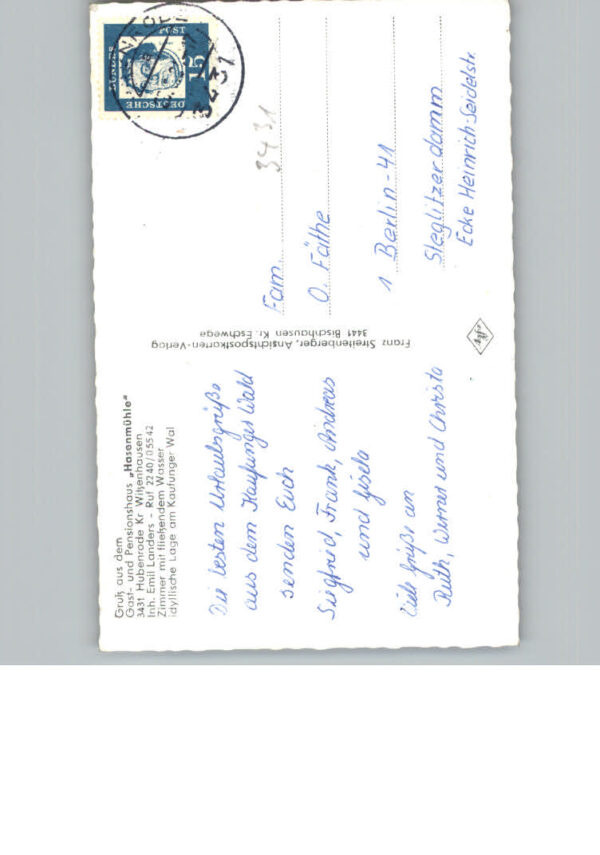 Gruß aus dem
Gast- und Pensionshaus „Hasenmühle"
3431 Hubenrode Kr Witzenhausen
Inh. Emil Landers - Ruf 2240/05542
Zimmer mit fließendem Wasser
idyllische Lage am Kaufunger Wal
Die besten Urlaubsgrüße
aus dem Kaufunger Wald
senden Euch
Siegfried, Frank, Andreas
und Gisela
Viele Grüße an
Ruth, Werner und Christa
Franz Streitenberger, Ansichtspostkarten-Verlag
3441 Bischhausen Kr. Eschwege
DEUTSCHE
BUNDES
POST
15
3431
Fam.
O. Fäthe
1 Berlin-41
Steglitzerdamm
Ecke Heinrich-Seidelstr.